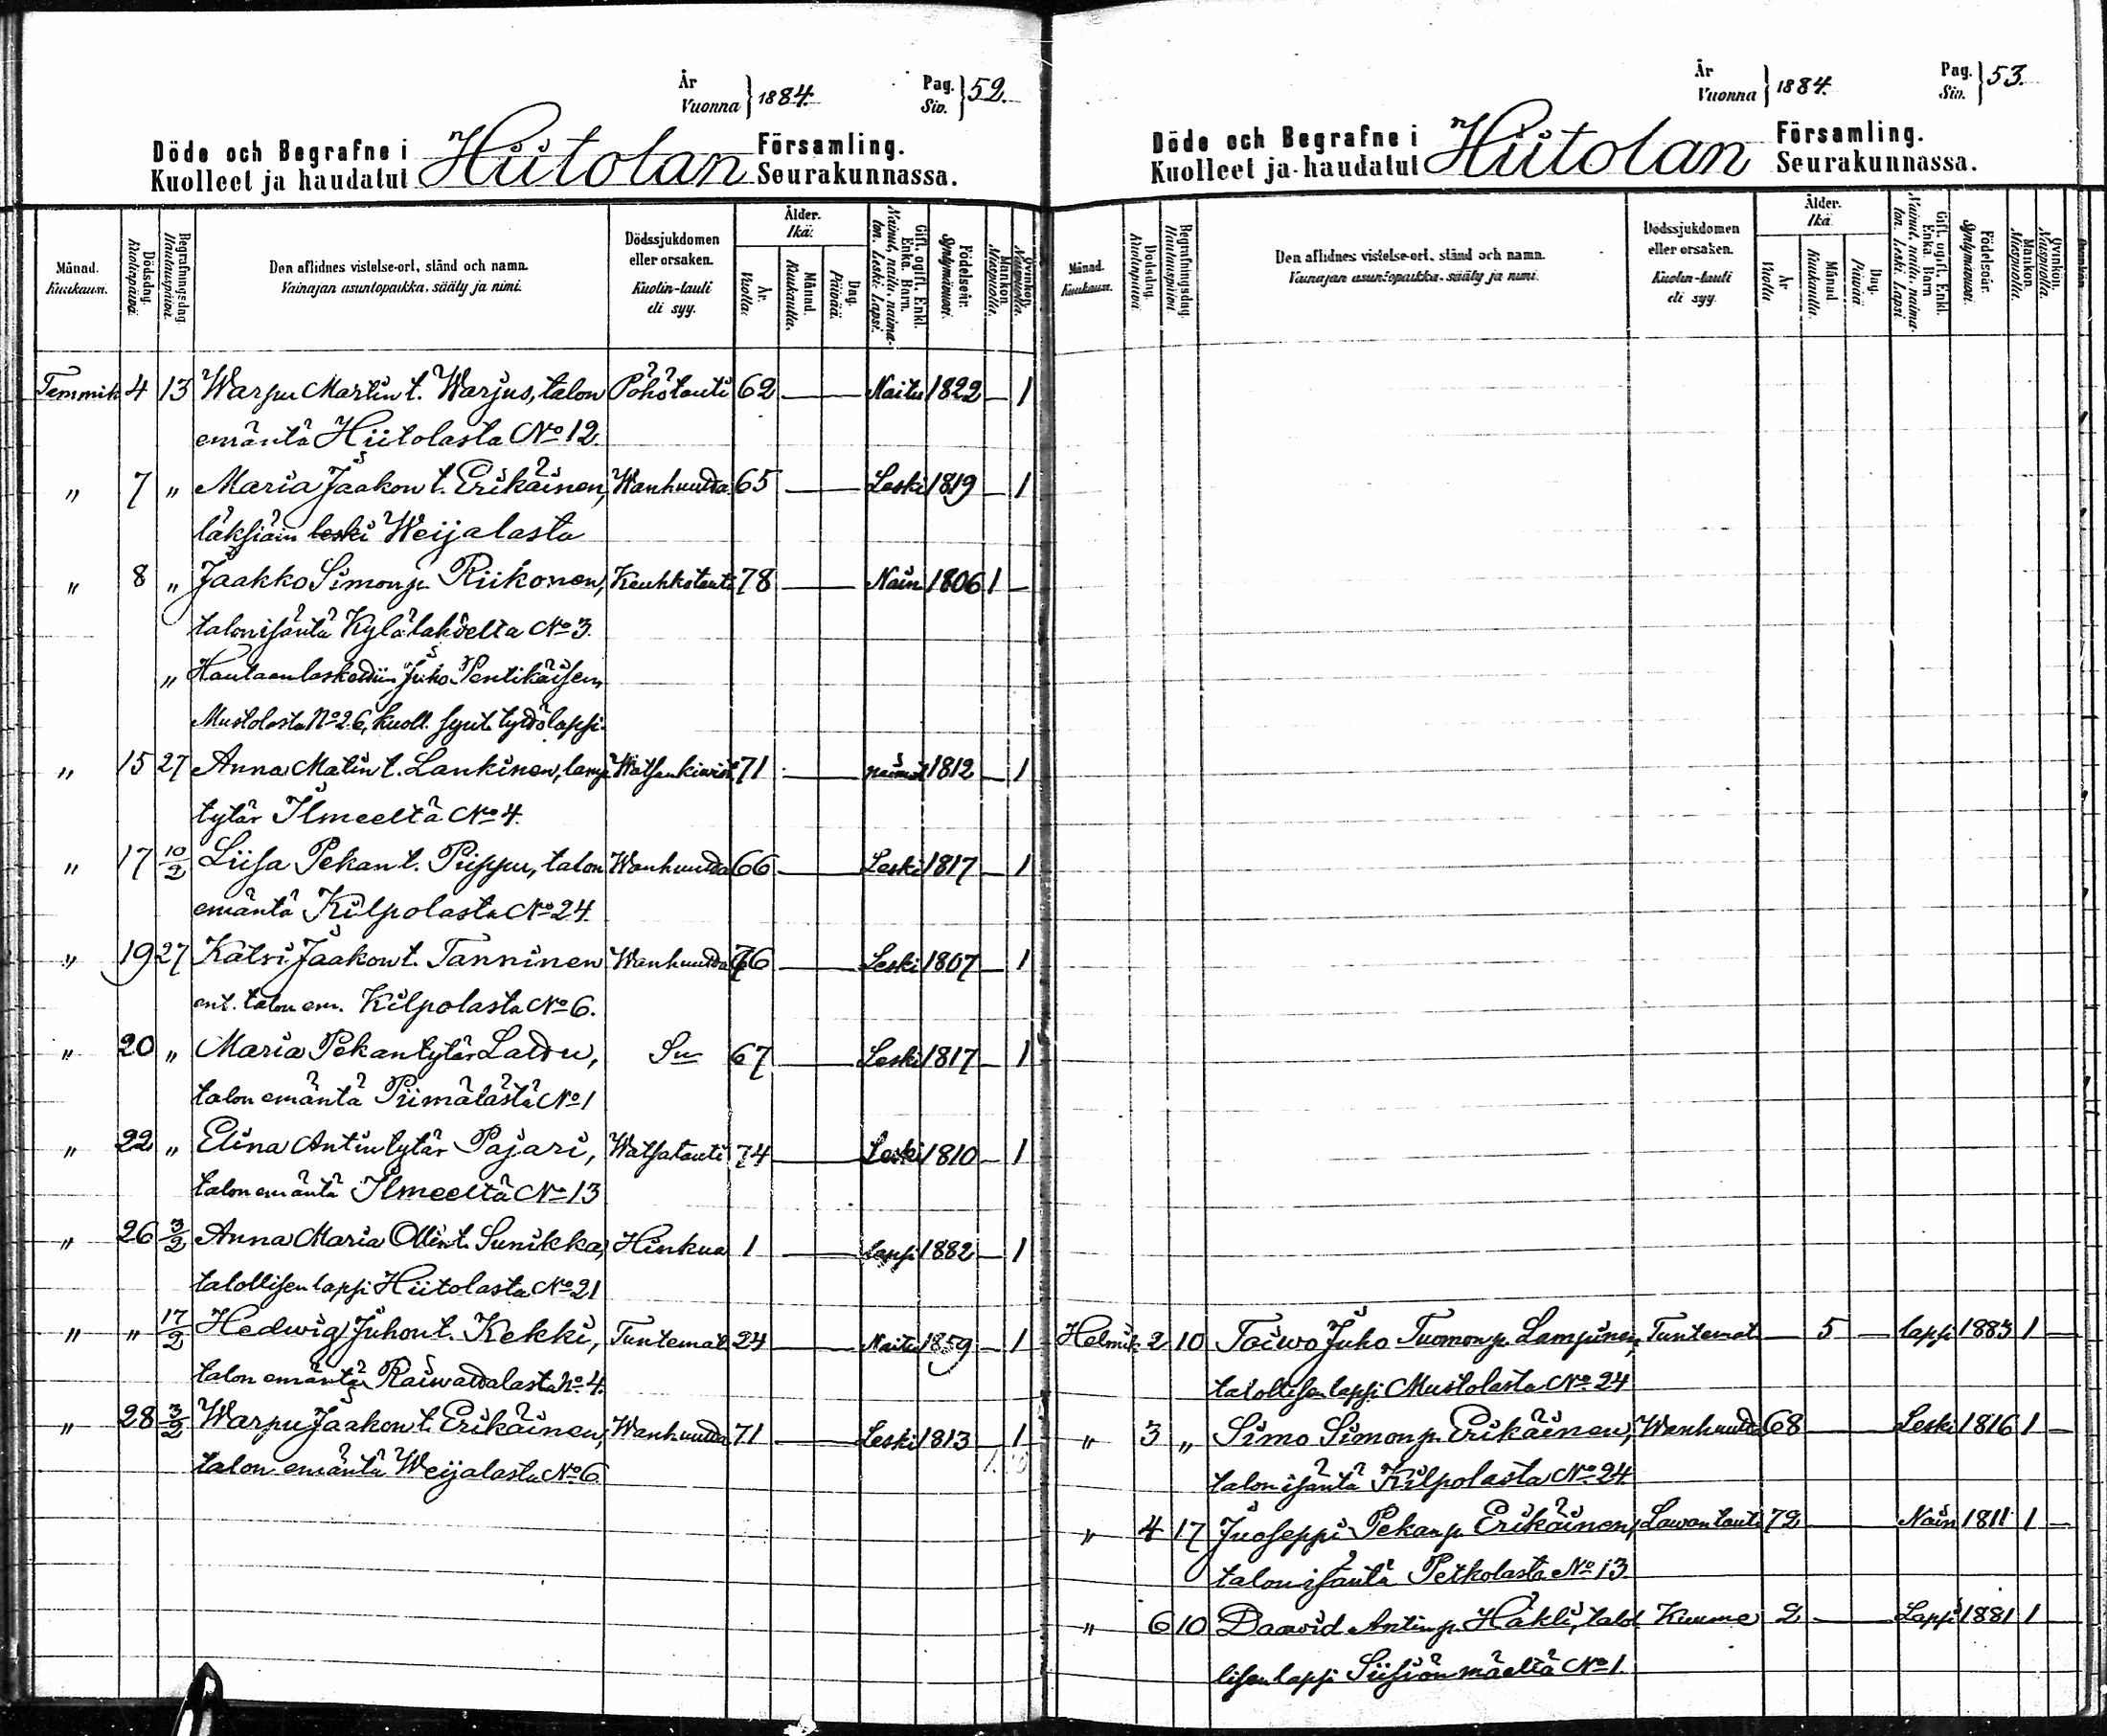 År
Vuonna } 1884.
Pag.
Siv. } 52.
Döde och Begrafne i
Kuolleet ja haudatut Hiitolan Församling.
Seurakunnassa.
Månad.
Kuukausi.
Dödsdag.
Kuolinpäivä.
Begrafningsdag.
Hautauspäivä.
Den aflidnes vistelse-ort, stånd och namn.
Vainajan asuntopaikka, sääty ja nimi.
Dödssjukdomen
eller orsaken.
Kuolin-tauti
eli syy.
Ålder.
Ikä.
År.
Vuotta.
Månad.
Kuukautta.
Dag.
Päivää.
Gift, ogift, Enkl.
Enka. Barn.
Nainut, naitu, naima-
ton. Leski. Lapsi.
Födelseår.
Syntymävuosi.
Mankön.
Miespuolia.
Qvinkön.
Naispuolia.
Tammik 4 13 Warpu Martin t. Warjus, talon Pöhötauti 62 — Naitu 1822 — 1
emäntä Hiitolasta No 12.
" 7 " Maria Jaakon t. Erikäinen, Wanhuutta 65 — Leski 1819 — 1
läksiäin leski Weijalasta
" 8 " Jaakko Simon p. Riikonen, Keuhkotauti 78 — Nain 1806 1 —
talon isäntä Kylälahdelta No 3.
" Hautaan laskettiin Juho Pentikäisen
Mustolasta No 26, kuoll. synt. tyttölapsi.
" 15 27 Anna Matin t. Lankinen, Watsankivist 71 — naimat 1812 — 1
tytär Ilmeeltä No 4.
" 17 10/2 Liisa Pekan t. Piippu, talon Wanhuutta 66 — Leski 1817 — 1
emäntä Kilpolasta No 24.
" 19 27 Katri Jaakon t. Tanninen Wanhuutta 76 — Leski 1807 — 1
ent. talon em. Kilpolasta No 6.
" 20 " Maria Pekantytär Lattu, Sn 67 — Leski 1817 — 1
talon emäntä Piimälästä No 1
" 22 " Elina Antintytär Pajari, Watsatauti 74 — Leski 1810 — 1
talon emäntä Ilmeeltä No 13
" 26 3/2 Anna Maria Ollin t. Sunikka, Hinkua 1 — lapsi 1882 — 1
talollisen lapsi Hiitolasta No 21
" " 17/2 Hedwig Juhon t. Kekki, Tuntemat 24 — Naitu 1859 — 1
talon emäntä Raiwattalasta No 4.
" 28 3/2 Warpu Jaakon t. Erikäinen, Wanhuutta 71 — Leski 1813 — 1
talon emäntä Weijalasta No 6
År
Vuonna } 1884.
Pag.
Siv. } 53.
Döde och Begrafne i
Kuolleet ja haudatut Hiitolan Församling.
Seurakunnassa.
Månad.
Kuukausi.
Dödsdag.
Kuolinpäivä.
Begrafningsdag.
Hautauspäivä.
Den aflidnes vistelse-ort, stånd och namn.
Vainajan asuntopaikka, sääty ja nimi.
Dödssjukdomen
eller orsaken.
Kuolin-tauti
eli syy.
Ålder.
Ikä.
År
Vuotta
Månad
Kuukautta.
Dag.
Päivää.
Gift, ogift, Enkl.
Enka. Barn
Nainut, naitu, naima-
ton. Leski. Lapsi
Födelseår.
Syntymävuosi.
Mankön.
Miespuolia.
Qvinkön.
Naispuolia.
Helmik 2 10 Toiwo Juho Tuomon p. Lampinen, Tuntemat — 5 — lapsi 1883 1 —
talollisen lapsi Mustolasta No 24
" 3 " Simo Simon p. Erikäinen, Wanhuutta 68 — Leski 1816 1 —
talon isäntä Kilpolasta No 24.
" 4 17 Juoseppi Pekan p. Erikäinen, Lawantauti 72 — Nain 1811 1 —
talon isäntä Petkolasta No 13.
" 6 10 Daawid Antin p. Häkli, talol Kuume 2 — Lapsi 1881 1
lisen lapsi Siisiönmäeltä No 1.